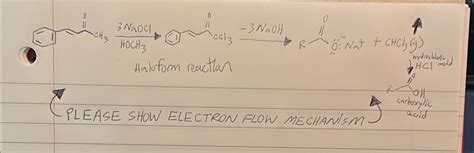 O
CH3
3NaOCl
HOCH3
O
CCl3
-3NaOH
O
R
O:⁻ Na+ + CHCl3(g)
Haloform reaction
hydrochloric
HCl acid
O
R OH
carboxylic
acid
PLEASE SHOW ELECTRON FLOW MECHANISM